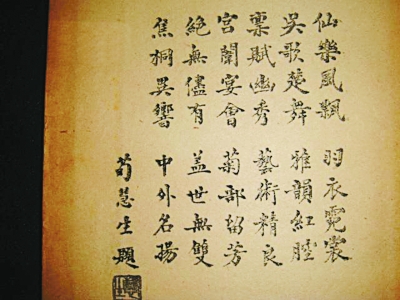 仙樂風飄 羽衣霓裳
吳歌楚舞 雅韻紅腔
稟賦幽秀 藝術精良
宮闈宴會 菊部留芳
絕無僅有 蓋世無雙
焦桐異響 中外名揚
荀慧生題